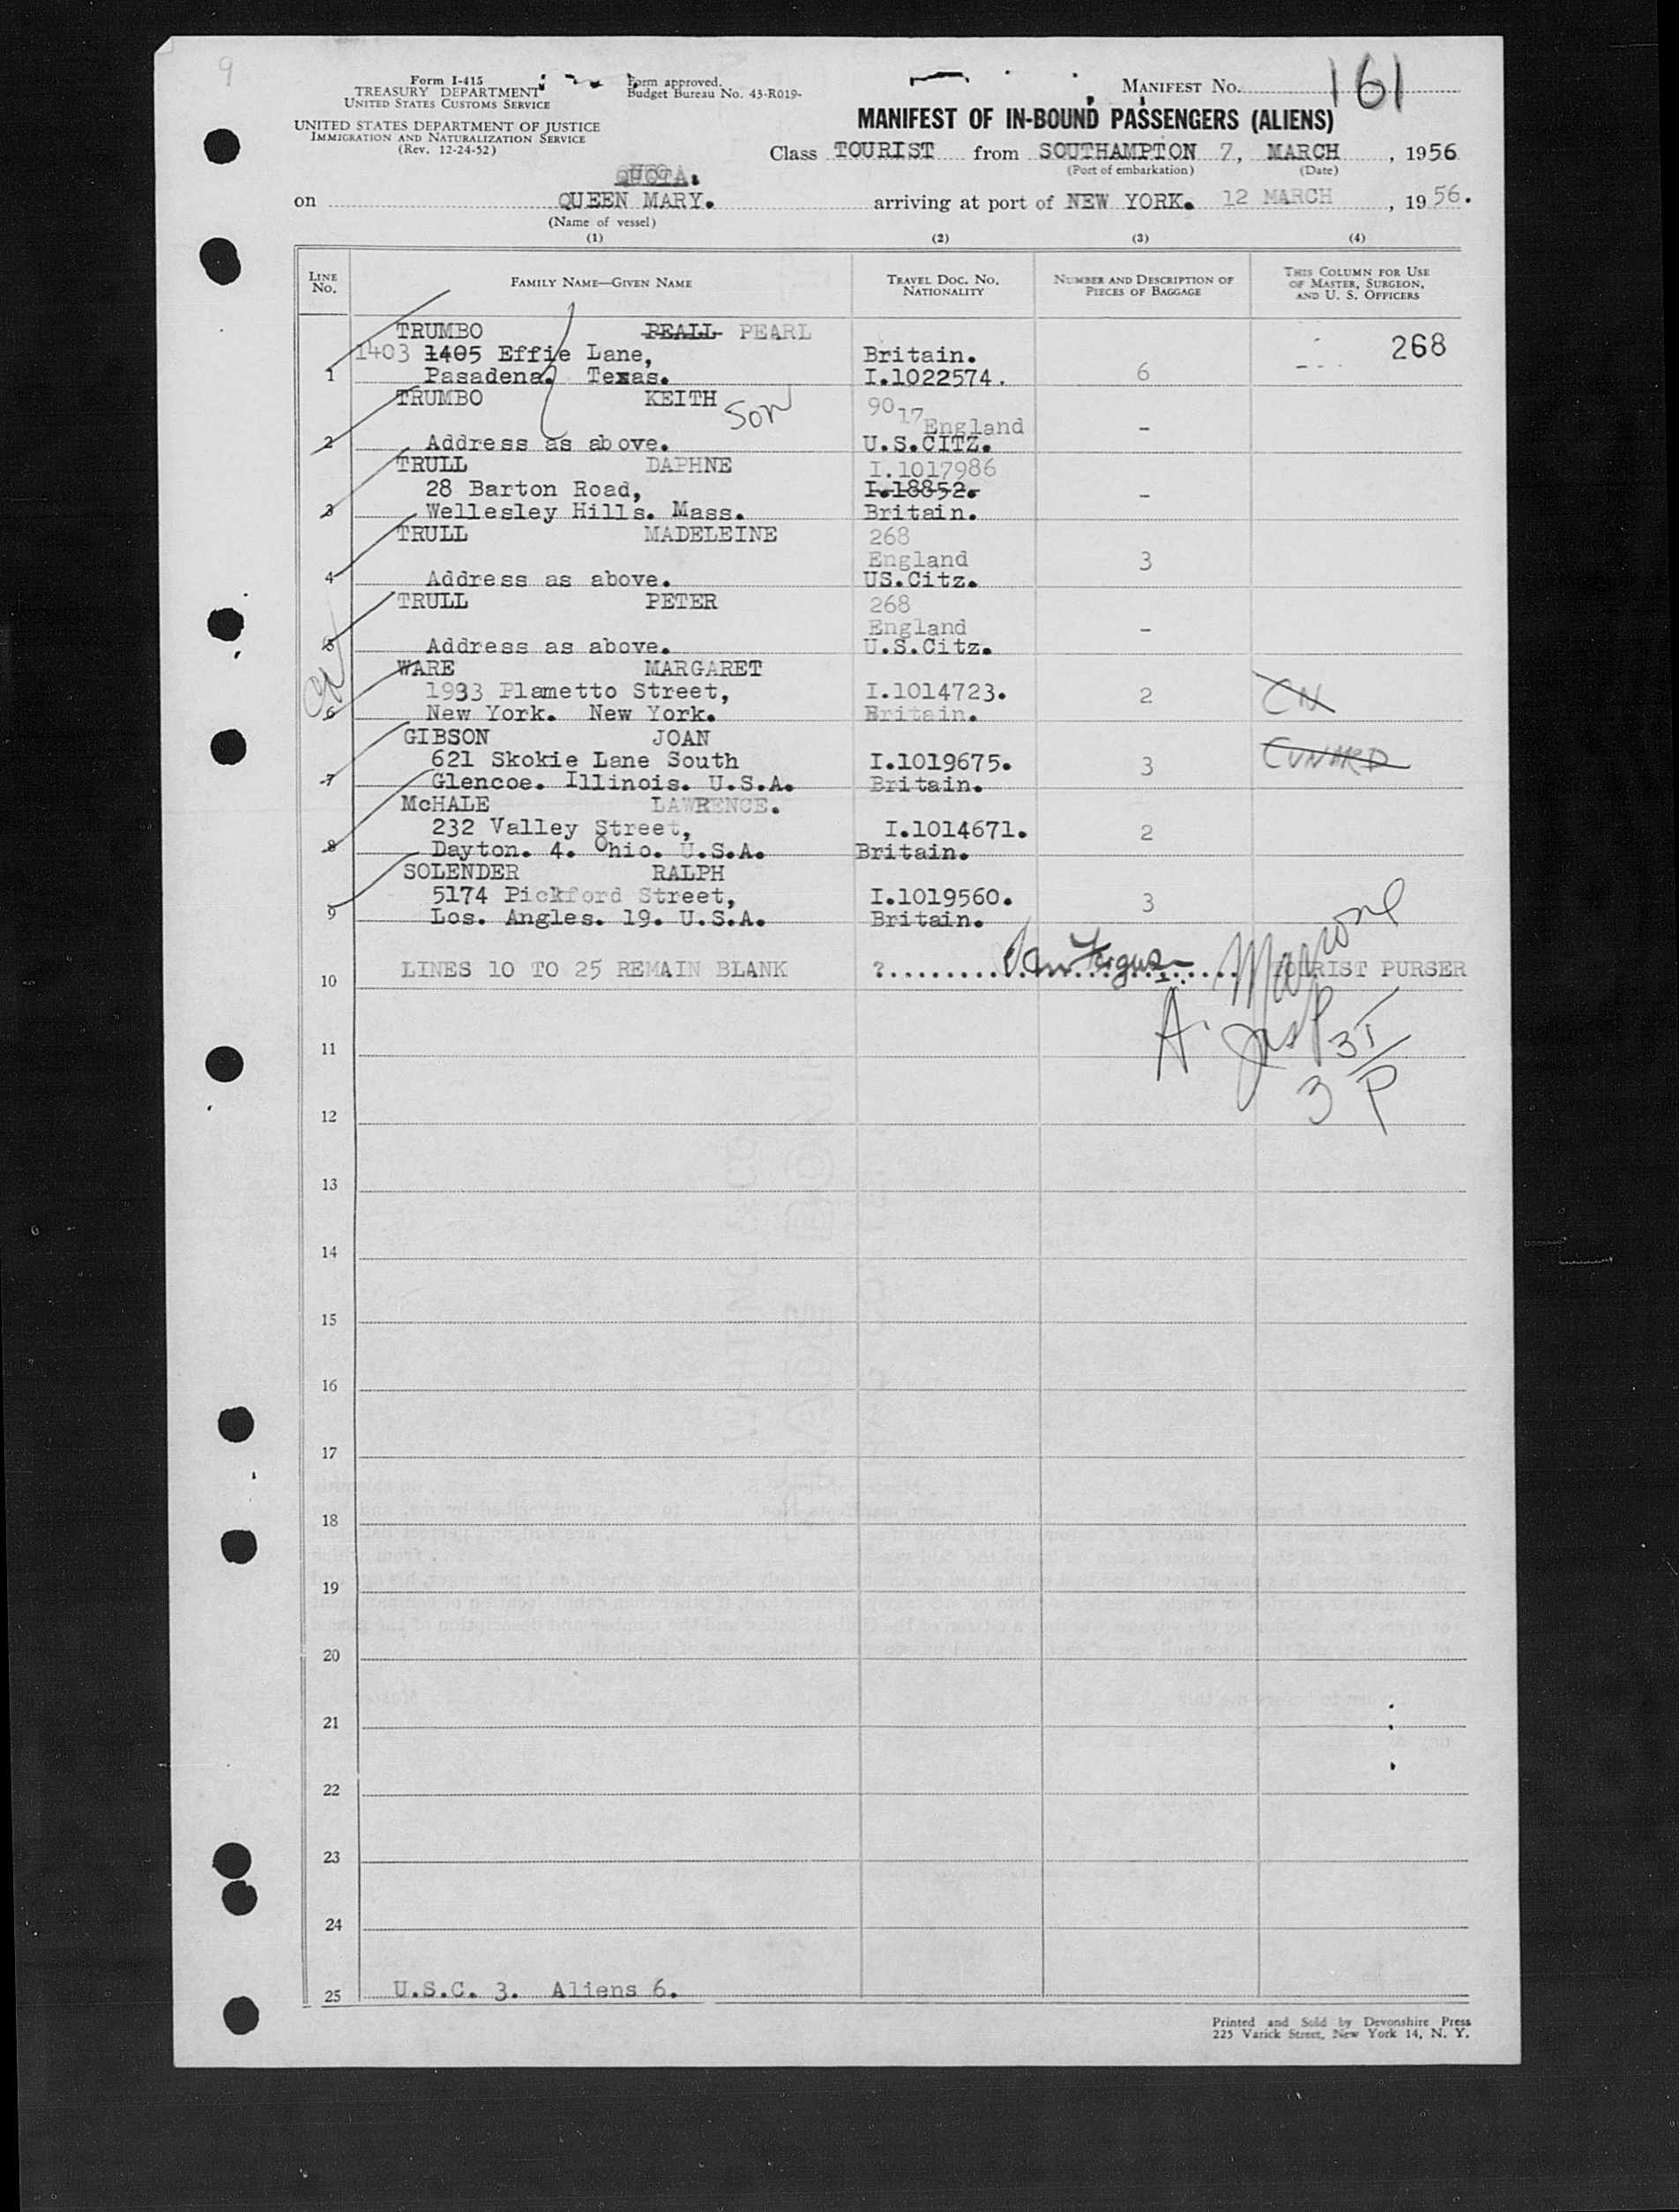 9
Form I-415
TREASURY DEPARTMENT
UNITED STATES CUSTOMS SERVICE
Form approved.
Budget Bureau No. 43-R019-
MANIFEST NO. 161
UNITED STATES DEPARTMENT OF JUSTICE
IMMIGRATION AND NATURALIZATION SERVICE
(Rev. 12-24-52)
MANIFEST OF IN-BOUND PASSENGERS (ALIENS)
Class TOURIST from SOUTHAMPTON 7, MARCH, 1956
(Port of embarkation) (Date)
QUOTA.
on QUEEN MARY. arriving at port of NEW YORK. 12 MARCH, 1956.
(Name of vessel)
(1) (2) (3) (4)
LINE No. FAMILY NAME—GIVEN NAME TRAVEL DOC. NO. NATIONALITY NUMBER AND DESCRIPTION OF PIECES OF BAGGAGE THIS COLUMN FOR USE OF MASTER, SURGEON, AND U. S. OFFICERS
TRUMBO PEALL PEARL 268
1403 1405 Effie Lane, Britain.
1 Pasadena. Texas. I.1022574. 6
TRUMBO KEITH Son 9017
England
2 Address as above. U.S.CITZ. -
TRULL DAPHNE I.1017986
28 Barton Road, I.18852. -
3 Wellesley Hills. Mass. Britain.
TRULL MADELEINE 268
England 3
4 Address as above. US.Citz.
TRULL PETER 268
England -
5 Address as above. U.S.Citz.
WARE MARGARET
1933 Plametto Street, I.1014723. 2 CN
6 New York. New York. Britain.
GIBSON JOAN
621 Skokie Lane South I.1019675. 3 CUNARD
7 Glencoe. Illinois. U.S.A. Britain.
McHALE LAWRENCE.
232 Valley Street, I.1014671. 2
8 Dayton. 4. Ohio. U.S.A. Britain.
SOLENDER RALPH
5174 Pickford Street, I.1019560. 3
9 Los. Angles. 19. U.S.A. Britain.
10 LINES 10 TO 25 REMAIN BLANK ?.......... TOURIST PURSER
11
12
13
14
15
16
17
18
19
20
21
22
23
24
25 U.S.C. 3. Aliens 6.
Printed and Sold by Devonshire Press
225 Varick Street, New York 14, N. Y.